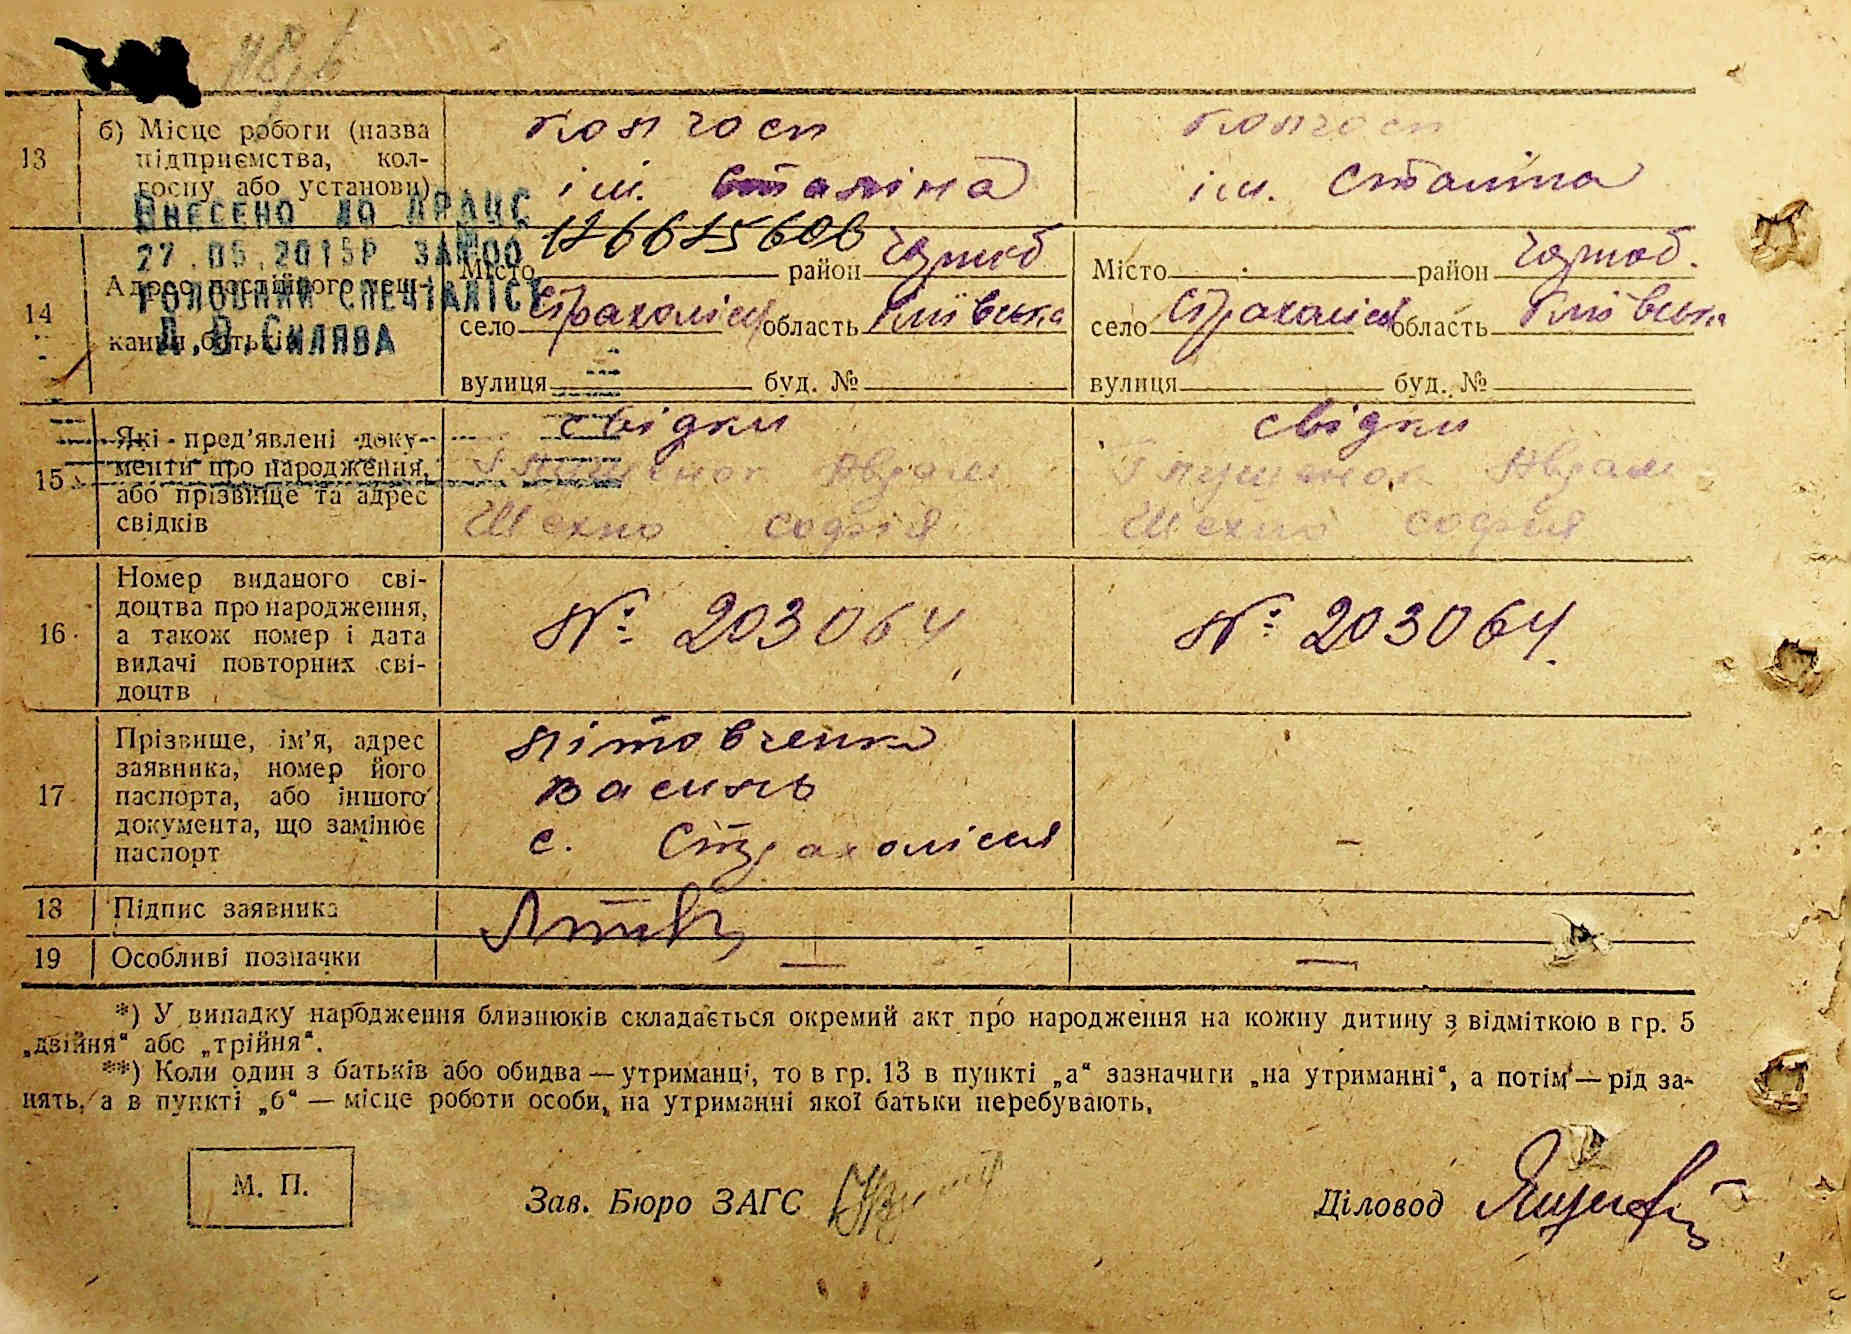 13
б) Місце роботи (назва
підприємства, кол-
госпу або установи)
колгосп
ім. Сталіна
колгосп
ім. Сталіна
ВНЕСЕНО ДО ДРАЦС
27.05.2015Р ЗА №00 12661560б
ГОЛОВНИЙ СПЕЦІАЛІСТ
Л.В.СИЛЯВА
14
Адрес постійного меш-
кання батьків
Місто район Чорноб
село Страхолісся область Київська
вулиця буд. №
Місто район Чорноб.
село Страхолісся область Київська
вулиця буд. №
15
Які пред’явлені доку-
менти про народження,
або прізвище та адрес
свідків
свідки
Глушенок Аврам
Шехно Софія
свідки
Глушенок Аврам
Шехно Софія
16
Номер виданого сві-
доцтва про народження,
а також номер і дата
видачі повторних сві-
доцтв
№ 203064
№ 203064.
17
Прізвище, ім’я, адрес
заявника, номер його
паспорта, або іншого
документа, що замінює
паспорт
Літовченко
Василь
с. Страхолісся
–
18 Підпис заявника
19 Особливі позначки — —
*) У випадку народження близнюків складається окремий акт про народження на кожну дитину з відміткою в гр. 5
„двійня“ або „трійня“.
**) Коли один з батьків або обидва — утриманці, то в гр. 13 в пункті „а“ зазначити „на утриманні“, а потім — рід за-
нять, а в пункті „б“ — місце роботи особи, на утриманні якої батьки перебувають.
М. П.
Зав. Бюро ЗАГС
Діловод